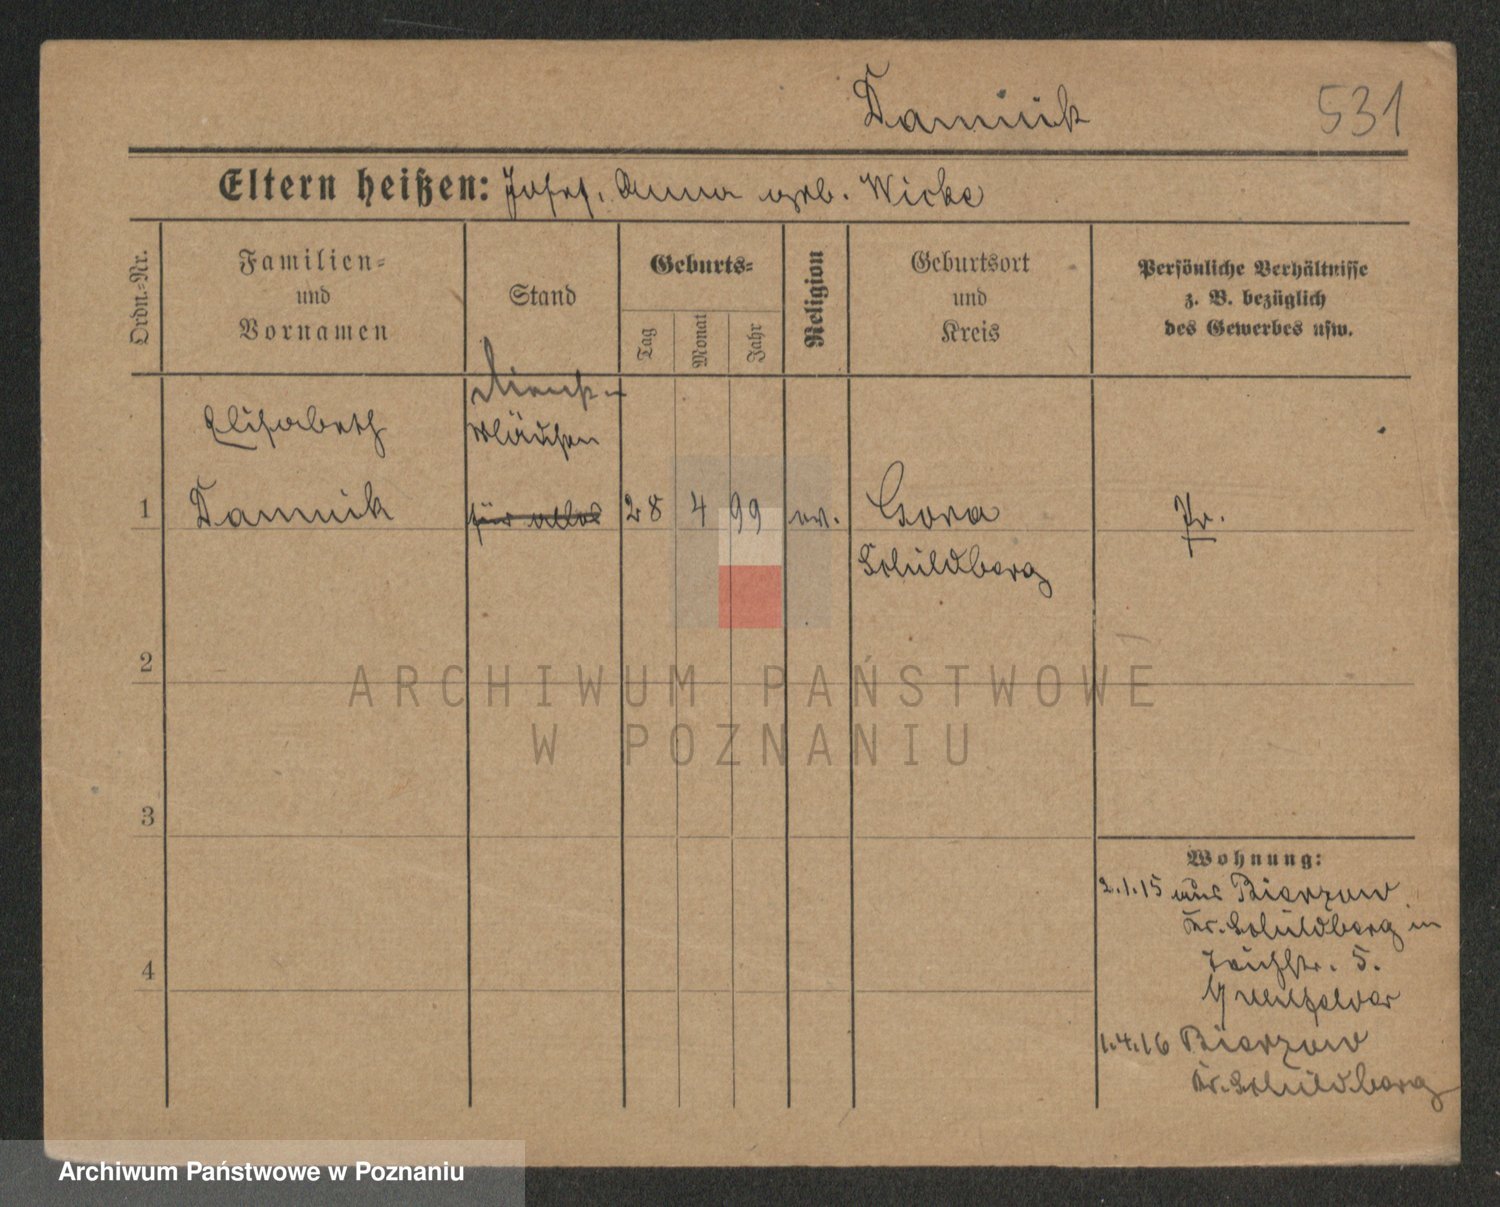 Dammik
531
Eltern heißen: Josef, Anna geb. Wicke
Ordn.-Nr.
Familien-
und
Vornamen
Stand
Geburts-
Tag
Monat
Jahr
Religion
Geburtsort
und
Kreis
Persönliche Verhältnisse
z. B. bezüglich
des Gewerbes usw.
Dienst-
Elisabeth
mädchen
1 Dammik für alles 28 4 99 ev. Gora Pr.
Schildberg
2
3
4
Wohnung:
2.1.15 aus Bierzow
Kr. Schildberg in
Teichstr. 5.
1.4.16 Bierzow
Kr. Schildberg
ARCHIWUM PAŃSTWOWE
W POZNANIU
Archiwum Państwowe w Poznaniu